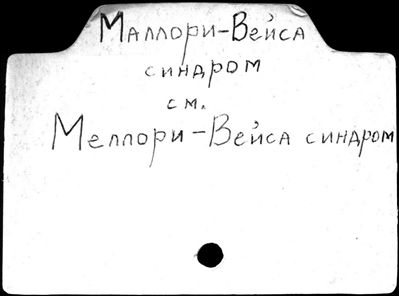 Маллори-Вейса
синдром
см.
Меллори-Вейса синдром